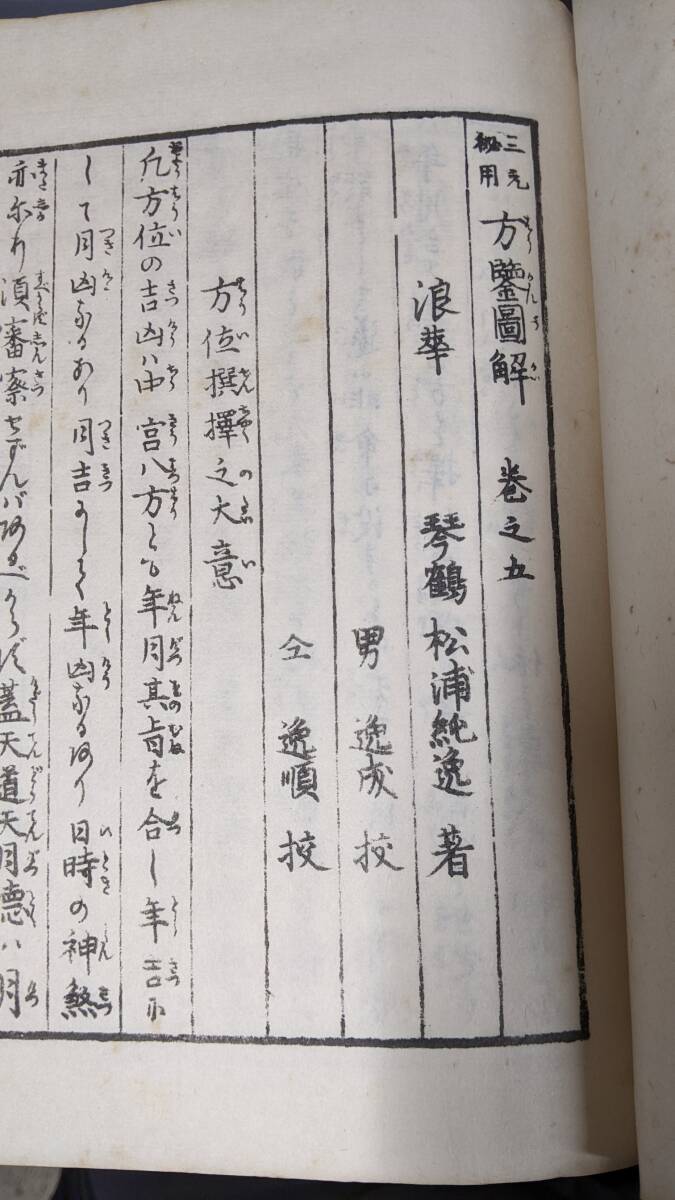 三元秘用 方鑒圖解 巻之五
浪華 琴鶴 松浦純逸 著
男 逸成 挍
仝 逸順 挍
方位撰擇之大意
凡方位の吉凶ハ中宮八方とも年月其旨を合し年吉ニ
して月凶なるあり月吉にして年凶なるあり日時の神煞
亦尓り須審察せずんバあるべからず蓋天道天月德ハ月